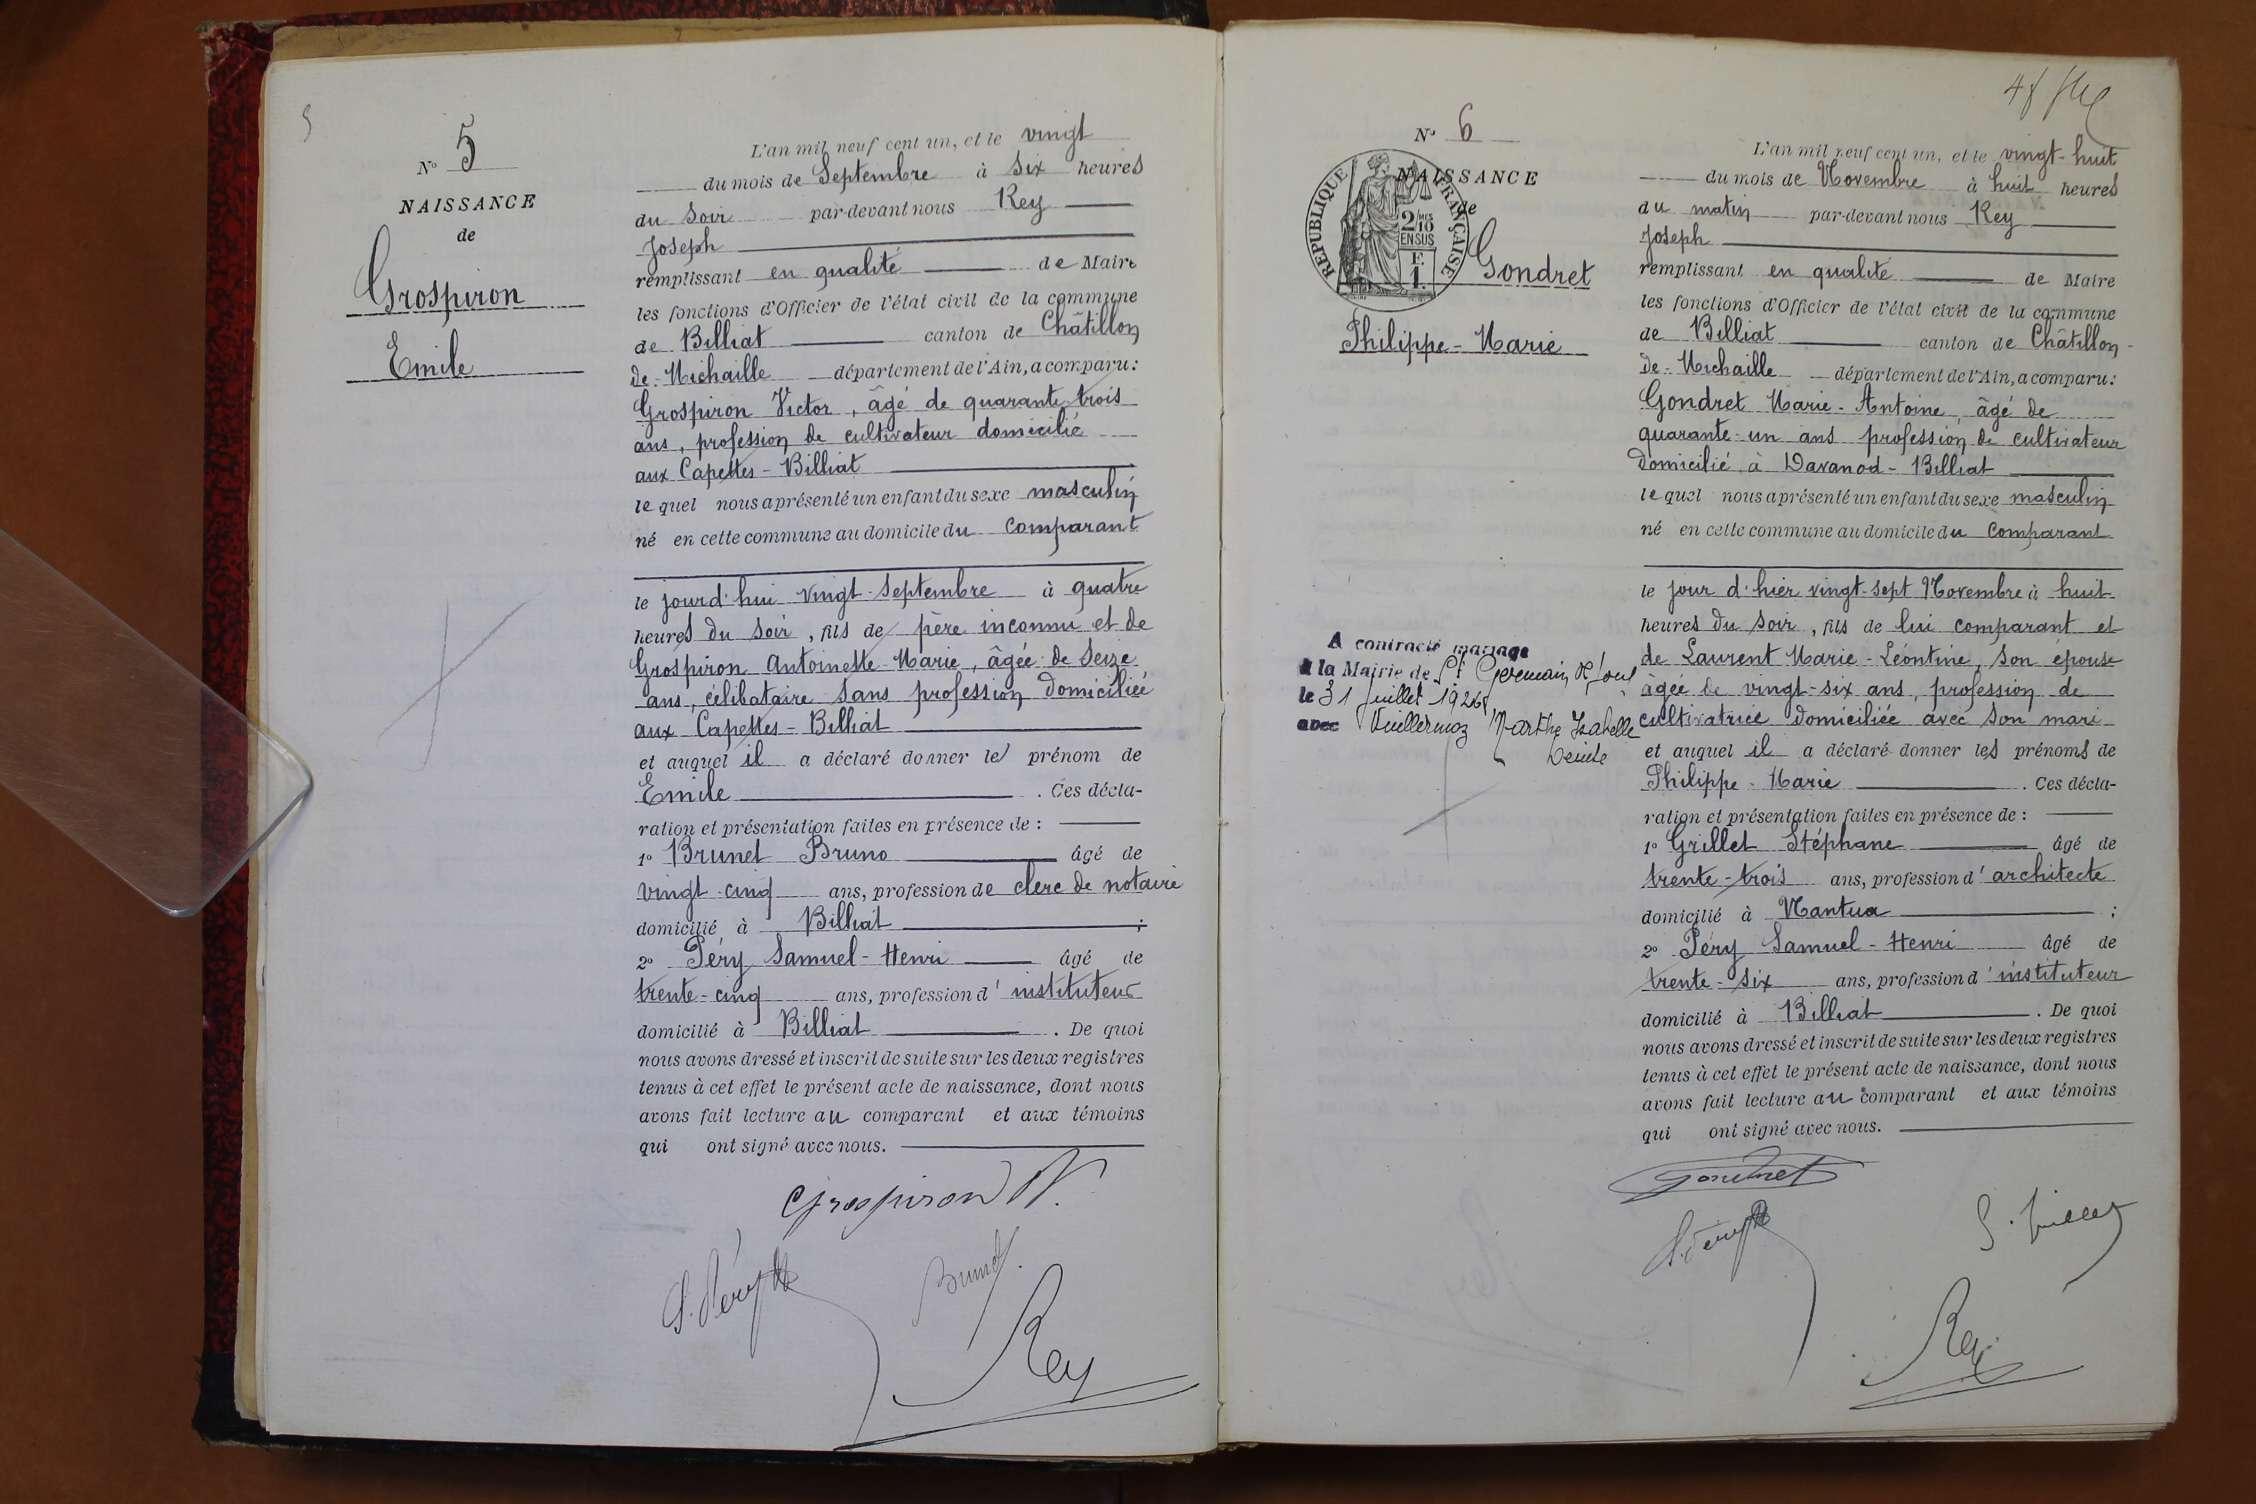 5
N° 5
NAISSANCE
de
Grospiron
Emile
L'an mil neuf cent un, et le vingt
du mois de Septembre à six heures
du soir par-devant nous Rey
Joseph
remplissant en qualité de Maire
les fonctions d'Officier de l'état civil de la commune
de Billiat canton de Châtillon
de-Michaille département de l'Ain, a comparu:
Grospiron Victor, âgé de quarante-trois
ans, profession de cultivateur domicilié
aux Capettes-Billiat
le quel nous a présenté un enfant du sexe masculin
né en cette commune au domicile du comparant
le jourd'hui vingt-septembre à quatre
heures du soir, fils de père inconnu et de
Grospiron Antoinette-Marie, âgée de seize
ans, célibataire sans profession domiciliée
aux Capettes-Billiat
et auquel il a déclaré donner le prénom de
Emile . Ces décla-
ration et présentation faites en présence de :
1° Brunet Bruno âgé de
vingt-cinq ans, profession de clerc de notaire
domicilié à Billiat ;
2° Péry Samuel-Henri âgé de
trente-cinq ans, profession d'instituteur
domicilié à Billiat . De quoi
nous avons dressé et inscrit de suite sur les deux registres
tenus à cet effet le présent acte de naissance, dont nous
avons fait lecture au comparant et aux témoins
qui ont signé avec nous.
Grospiron V.
S. Péry Brunet
Rey
48
N° 6
NAISSANCE
de
REPUBLIQUE FRANÇAISE
2/10
EN SUS
F.
1.
Gondret
Philippe-Marie
A contracté mariage
à la Mairie de St Germain de Joux
le 31 Juillet
avec Vuillermoz Marthe Isabelle
Denise
L'an mil neuf cent un, et le vingt-huit
du mois de Novembre à huit heures
du matin par-devant nous Rey
Joseph
remplissant en qualité de Maire
les fonctions d'Officier de l'état civil de la commune
de Billiat canton de Châtillon-
de-Michaille département de l'Ain, a comparu:
Gondret Marie-Antoine âgé de
quarante-un ans profession de cultivateur
domicilié à Davanod-Billiat
le quel nous a présenté un enfant du sexe masculin
né en cette commune au domicile du comparant
le jour d'hier vingt-sept Novembre à huit
heures du soir, fils de lui comparant et
de Laurent Marie-Léontine, son epouse
âgée de vingt-six ans, profession de
cultivatrice domiciliée avec son mari
et auquel il a déclaré donner les prénoms de
Philippe-Marie . Ces décla-
ration et présentation faites en présence de :
1° Grillet Stéphane âgé de
trente-trois ans, profession d'architecte
domicilié à Nantua ;
2° Péry Samuel-Henri âgé de
trente-six ans, profession d'instituteur
domicilié à Billiat . De quoi
nous avons dressé et inscrit de suite sur les deux registres
tenus à cet effet le présent acte de naissance, dont nous
avons fait lecture au comparant et aux témoins
qui ont signé avec nous.
Gondret
S. Péry S. Grillet
Rey